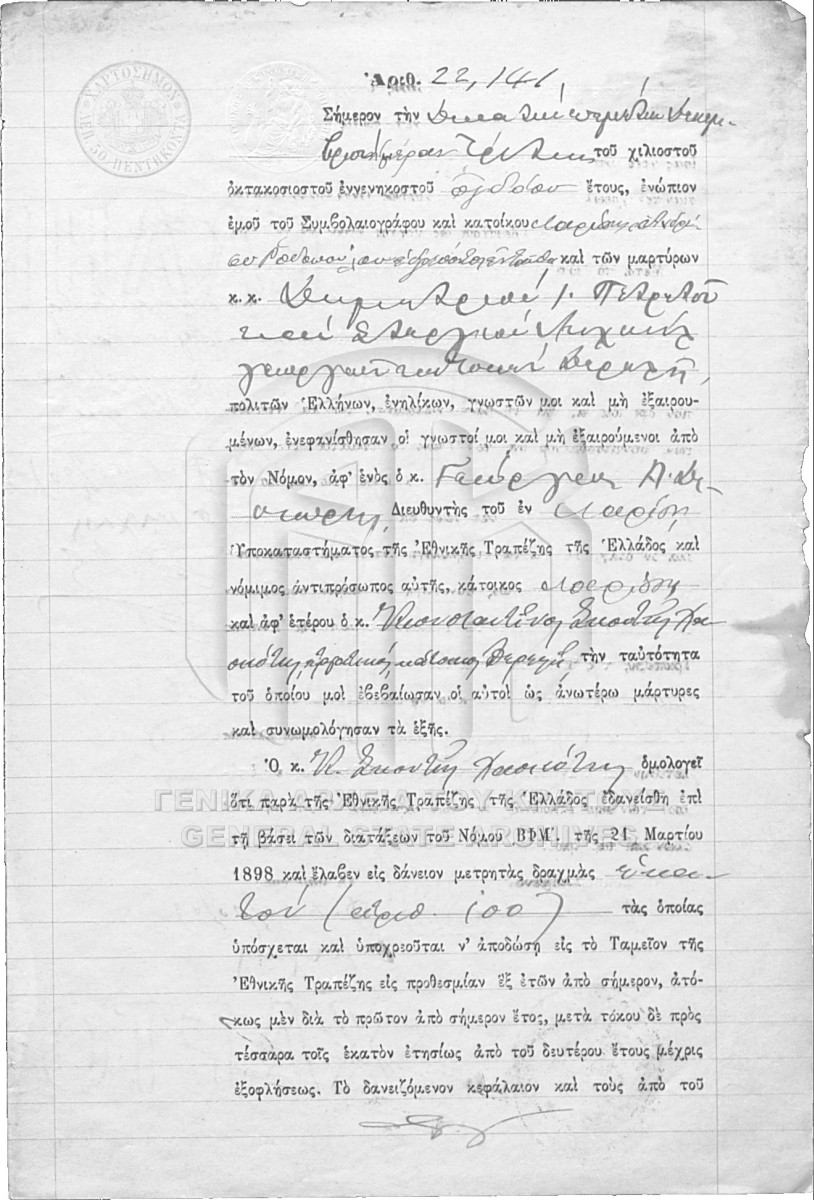 ΧΑΡΤΟΣΗΜΟΝ
ΛΕΠ. 50. ΠΕΝΤΗΚΟΝΤΑ
Ἀριθ. 22,141
Σήμερον τὴν δεκάτην πέμπτην Δεκεμ-
βρίου ἡμέραν Τρίτην τοῦ χιλιοστοῦ
ὀκτακοσιοστοῦ ἐννενηκοστοῦ ὀγδόου ἔτους, ἐνώπιον
ἐμοῦ τοῦ Συμβολαιογράφου καὶ κατοίκου Λαρίσης
καὶ τῶν μαρτύρων
κ. κ. Δημητρίου Ι. Πετρίτου
καὶ Στεργίου
πολιτῶν Ἑλλήνων, ἐνηλίκων, γνωστῶν μοι καὶ μὴ ἐξαιρου-
μένων, ἐνεφανίσθησαν οἱ γνωστοί μοι καὶ μὴ ἐξαιρούμενοι ἀπὸ
τὸν Νόμον, ἀφ' ἑνὸς ὁ κ. Γεώργιος Α.
Διευθυντὴς τοῦ ἐν Λαρίσῃ
Ὑποκαταστήματος τῆς Ἐθνικῆς Τραπέζης τῆς Ἑλλάδος καὶ
νόμιμος ἀντιπρόσωπος αὐτῆς, κάτοικος Λαρίσης
καὶ ἀφ' ἑτέρου ὁ κ. Κωνσταντῖνος
κάτοικος τὴν ταὐτότητα
τοῦ ὁποίου μοὶ ἐβεβαίωσαν οἱ αὐτοὶ ὡς ἀνωτέρω μάρτυρες
καὶ συνωμολόγησαν τὰ ἑξῆς.
Ὁ κ. Κ. ὁμολογεῖ
ὅτι παρὰ τῆς Ἐθνικῆς Τραπέζης τῆς Ἑλλάδος ἐδανείσθη ἐπὶ
τῇ βάσει τῶν διατάξεων τοῦ Νόμου ΒΦΜ'. τῆς 21 Μαρτίου
1898 καὶ ἔλαβεν εἰς δάνειον μετρητὰς δραχμὰς ἑκα-
τόν (ἀριθ. 100) τὰς ὁποίας
ὑπόσχεται καὶ ὑποχρεοῦται ν' ἀποδώσῃ εἰς τὸ Ταμεῖον τῆς
Ἐθνικῆς Τραπέζης εἰς προθεσμίαν ἓξ ἐτῶν ἀπὸ σήμερον, ἀτό-
κως μὲν διὰ τὸ πρῶτον ἀπὸ σήμερον ἔτος, μετὰ τόκου δὲ πρὸς
τέσσαρα τοῖς ἑκατὸν ἐτησίως ἀπὸ τοῦ δευτέρου ἔτους μέχρις
ἐξοφλήσεως. Τὸ δανειζόμενον κεφάλαιον καὶ τοὺς ἀπὸ τοῦ
ΓΕΝΙΚΑ ΑΡΧΕΙΑ ΤΟΥ ΚΡΑΤΟΥΣ
GENERAL STATE ARCHIVES